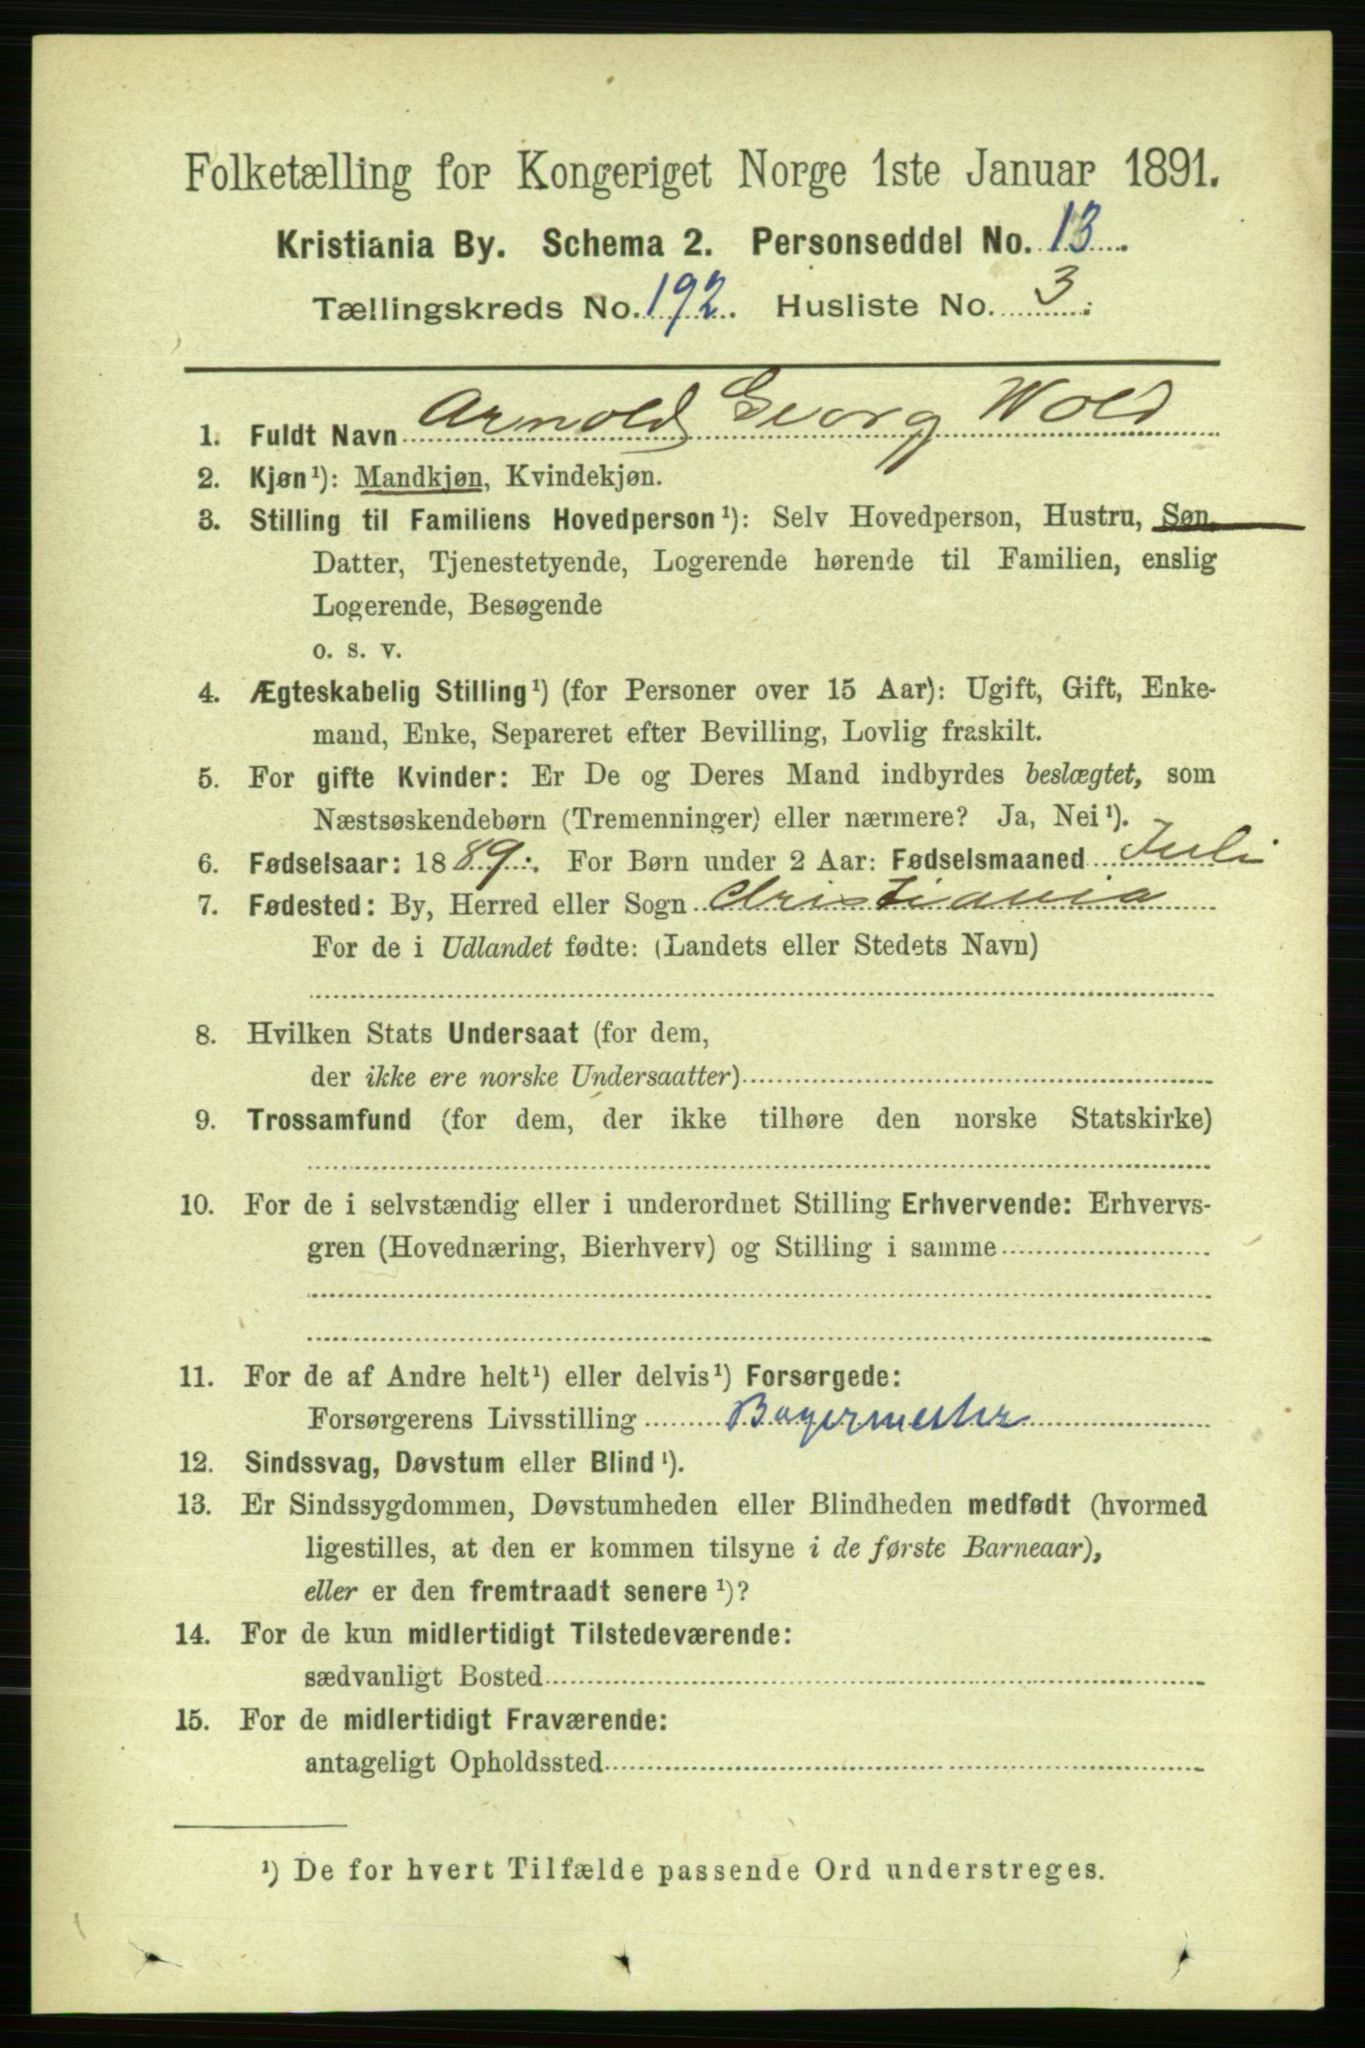 Folketælling for Kongeriget Norge 1ste Januar 1891.
Kristiania By. Schema 2. Personseddel No. 13.
Tællingskreds No. 192. Husliste No. 3.
1. Fuldt Navn Arnold Georg Wold
2. Kjøn¹): Mandkjøn, Kvindekjøn.
3. Stilling til Familiens Hovedperson¹): Selv Hovedperson, Hustru, Søn,
Datter, Tjenestetyende, Logerende hørende til Familien, enslig
Logerende, Besøgende
o. s. v.
4. Ægteskabelig Stilling¹) (for Personer over 15 Aar): Ugift, Gift, Enke-
mand, Enke, Separeret efter Bevilling, Lovlig fraskilt.
5. For gifte Kvinder: Er De og Deres Mand indbyrdes beslægtet, som
Næstsøskendebørn (Tremenninger) eller nærmere? Ja, Nei¹).
6. Fødselsaar: 1889. For Børn under 2 Aar: Fødselsmaaned Juli
7. Fødested: By, Herred eller Sogn Christiania
For de i Udlandet fødte: (Landets eller Stedets Navn)
8. Hvilken Stats Undersaat (for dem,
der ikke ere norske Undersaatter)
9. Trossamfund (for dem, der ikke tilhøre den norske Statskirke)
10. For de i selvstændig eller i underordnet Stilling Erhvervende: Erhvervs-
gren (Hovednæring, Bierhverv) og Stilling i samme
11. For de af Andre helt¹) eller delvis¹) Forsørgede:
Forsørgerens Livsstilling Bagermester
12. Sindssvag, Døvstum eller Blind¹).
13. Er Sindssygdommen, Døvstumheden eller Blindheden medfødt (hvormed
ligestilles, at den er kommen tilsyne i de første Barneaar),
eller er den fremtraadt senere¹)?
14. For de kun midlertidigt Tilstedeværende:
sædvanligt Bosted
15. For de midlertidigt Fraværende:
antageligt Opholdssted
¹) De for hvert Tilfælde passende Ord understreges.